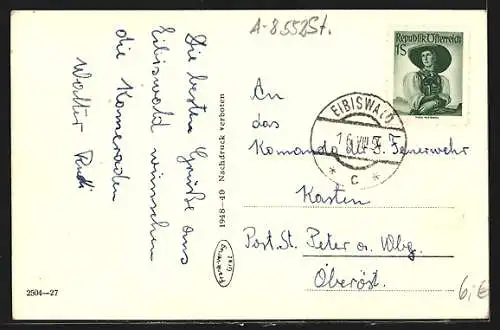 A-8552St.
Die besten Grüße aus
Eibiswald wünschen
die Kameraden
Walter Rudi
1948-49 Nachdruck verboten
2504-27
Republik Österreich
1S
EIBISWALD
16.VIII.
* c *
An
das
Komando der F. Feuerwehr
Kasten
Post. St. Peter a. Wbg.
Oberöst.
6,€